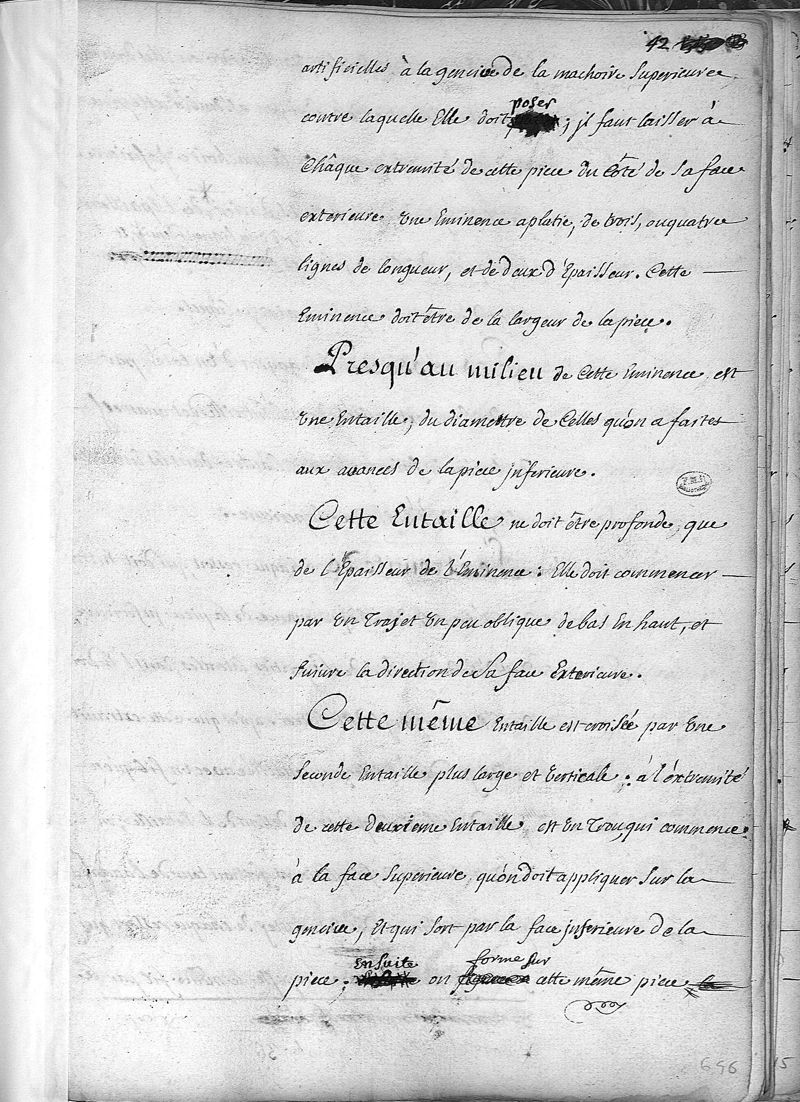 42
artificielles à la gencive de la machoire Superieure
contre laquelle Elle doit poser ; jl faut laisser à
Châque extremité de cette piece du Côté de Sa face
exterieure Une Eminence aplatie, de trois, ou quatre
lignes de longueur, et de deux d'Epaisseur. Cette
Eminence doit être de la largeur de la piece.
Presqu'au milieu de Cette Eminence, est
Une Entaille, du diamettre de Celles qu'on a faites
aux avances de la piece jnferieure.
Cette Entaille ne doit être profonde, que
de l'Epaisseur de l'Eminence : Elle doit commencer
par Un Trajet Un peu oblique de bas En haut, et
Suivre la direction de Sa face Exterieure.
Cette même Entaille est croisée par Une
Seconde Entaille plus large et Verticale ; à l'éxtremité
de cette deuxieme Entaille, est Un Trou, qui commence
à la face Superieure, qu'on doit appliquer Sur la
gencive, Et qui Sort par la face jnferieure de la
piece ; Ensuite on forme Sur cette même piece
696